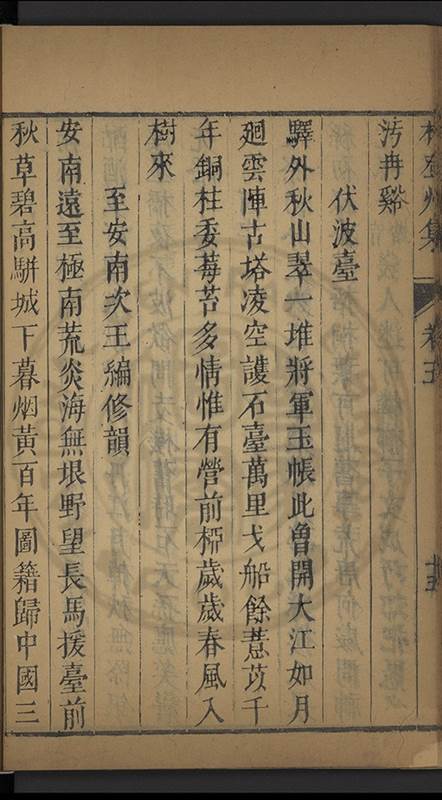 汚冉谿
伏波臺
驛外秋山翠一堆將軍玉帳此曾開大江如月
廻雲陣古塔凌空護石臺萬里戈船餘薏苡千
年銅柱委莓苔多情惟有營前桺歲歲春風入
樹來
至安南次王編修韻
安南遠至極南荒炎海無垠野望長馬援臺前
秋草碧高駢城下暮烟黃百年圖籍歸中國三